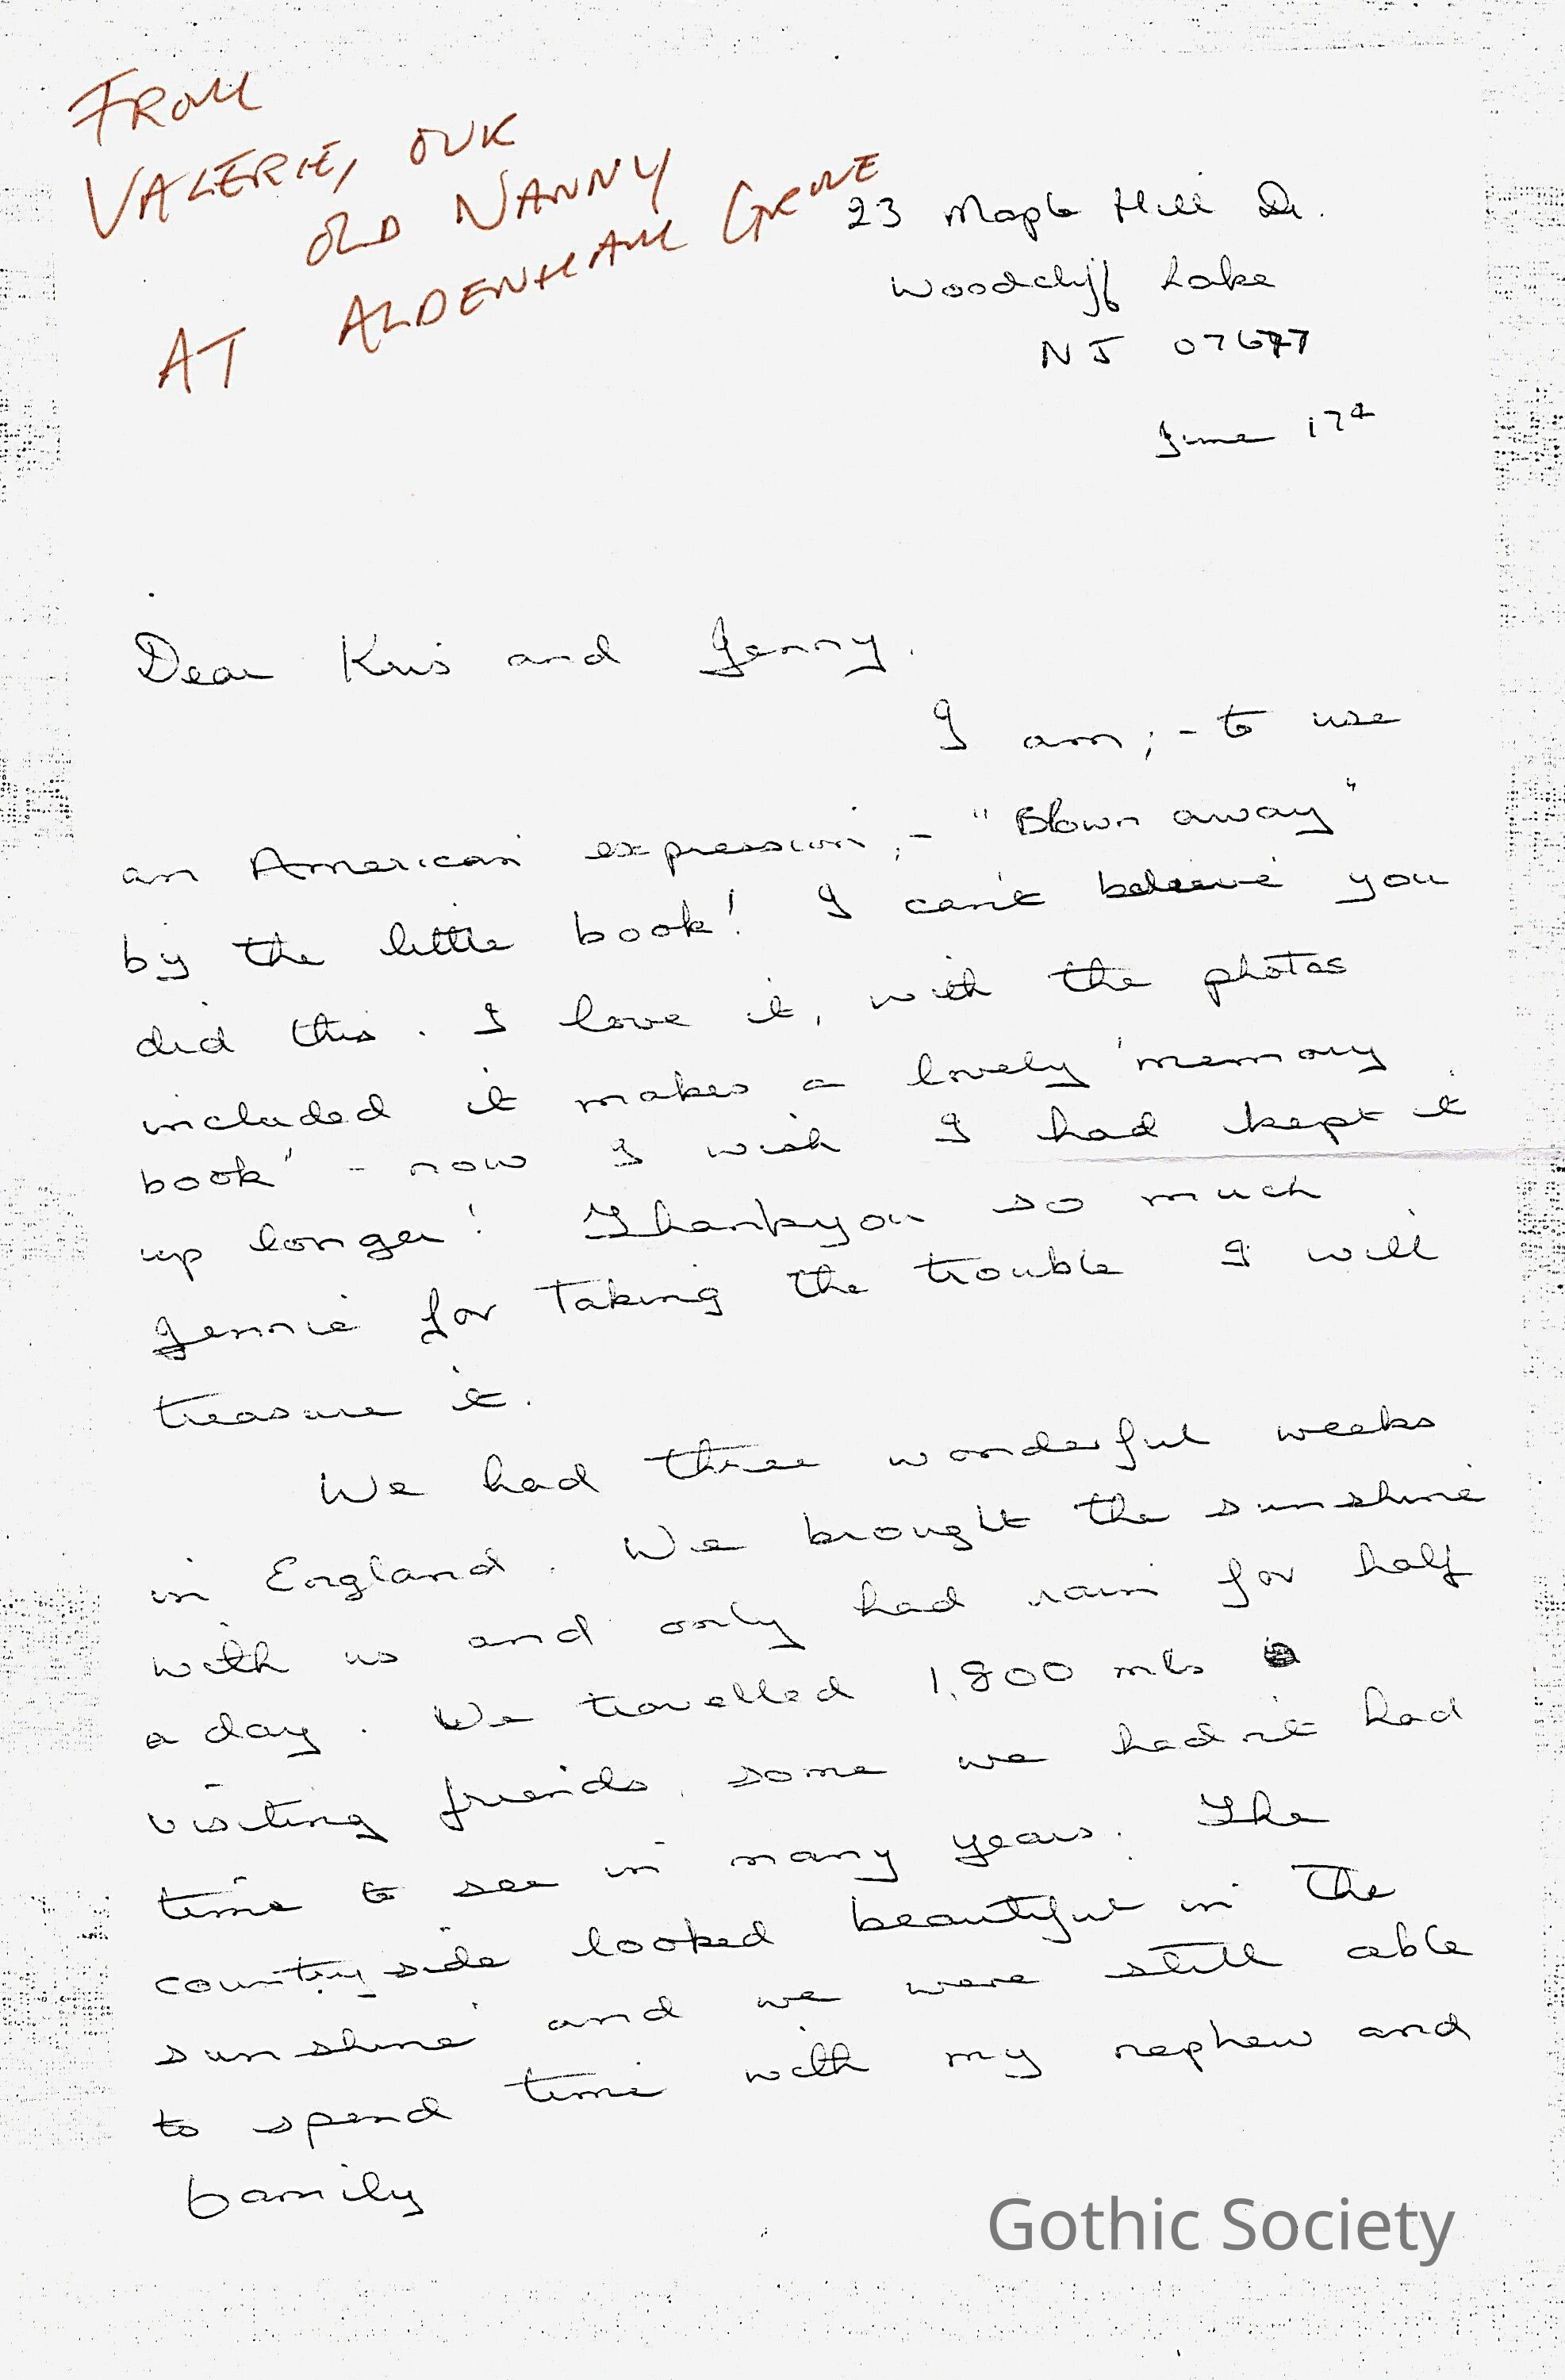 FROM
VALERIE, OUR
OLD NANNY
AT ALDENHAM GROVE
23 Maple Hill Dr.
Woodcliff Lake
NJ 07677
June 17th
Dear Kris and Jenny.
I am; - to use
an American expression; - "Blown away"
by the little book! I can't beleive you
did this. I love it, with the photos
included it makes a lovely 'memory
book' - now I wish I had kept it
up longer! Thankyou so much
Jennie for taking the trouble I will
treasure it.
We had three wonderful weeks
in England. We brought the sunshine
with us and only had rain for half
a day. We travelled 1,800 mls
visiting friends, some we hadn't had
time to see in many years. The
countryside looked beautiful in the
sunshine and we were still able
to spend time with my nephew and
family
Gothic Society